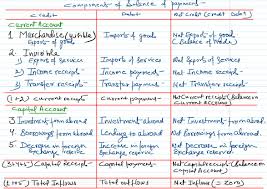 Components of Balance of payment
Credit Debit Net Credit (Credit - Debit)
Current Account
1 Merchandise (visible) Imports of goods Net Exports of Goods
Exports of goods (Balance of Trade)
2 Invisible
1) Exports of Services Imports of Services Net Exports of Services
2) Income receipts Income payments Net Income receipts
3) Transfer receipts Transfer payments Net Transfer receipts
(1+2) Current receipts Current payments Net Current receipts (Balance on
Current Account)
Capital Account
3 Investment from abroad Investment abroad Net Investment from abroad
4 Borrowings from abroad Lending to abroad Net Borrowings from abroad
5 Decrease in foreign Increase in foreign Net decrease in foreign
exchange reserve exchange reserve exchange reserve
(3+4+5) Capital receipts Capital payments Net Capital receipts (Balance on
Capital account)
(1 to 5) Total Inflows Total outflows Net Inflows (= Zero)